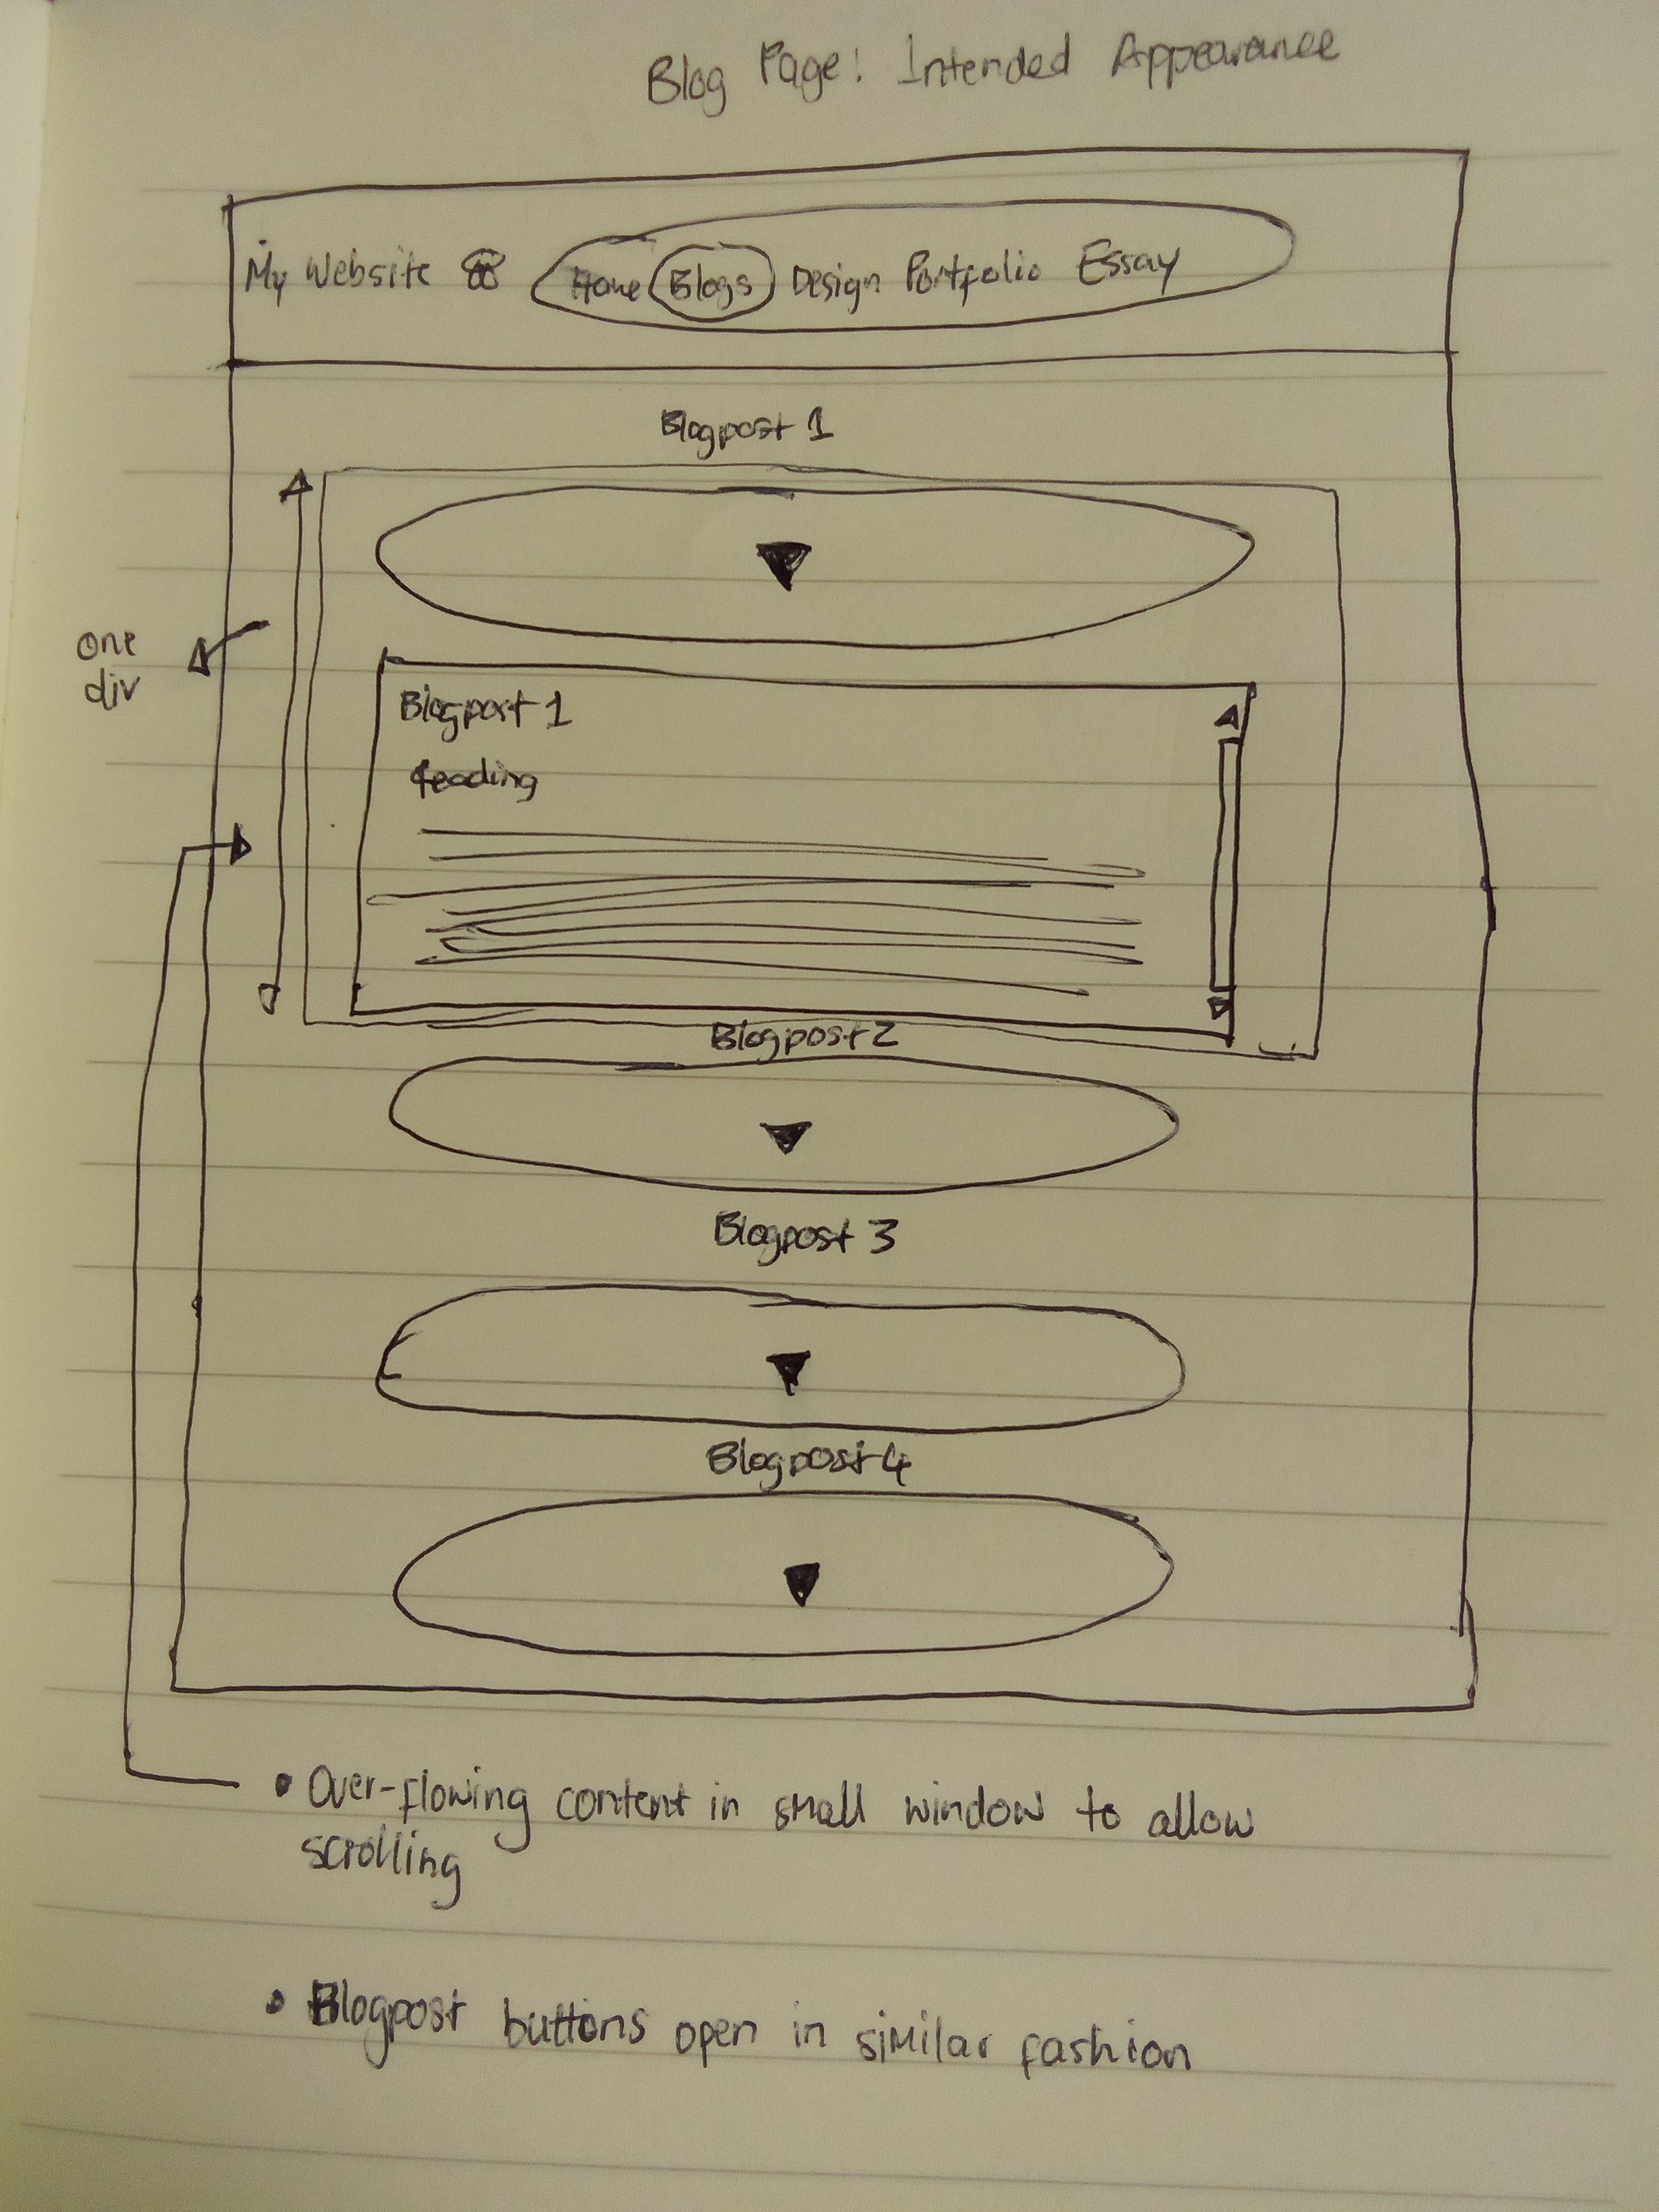 Blog Page: Intended Appearance
My Website Home Blogs Design Portfolio Essay
Blogpost 1
one
div
Blogpost 1
Blogpost 2
Blogpost 3
Blogpost 4
• Over-flowing content in small window to allow
scrolling
• Blogpost buttons open in similar fashion